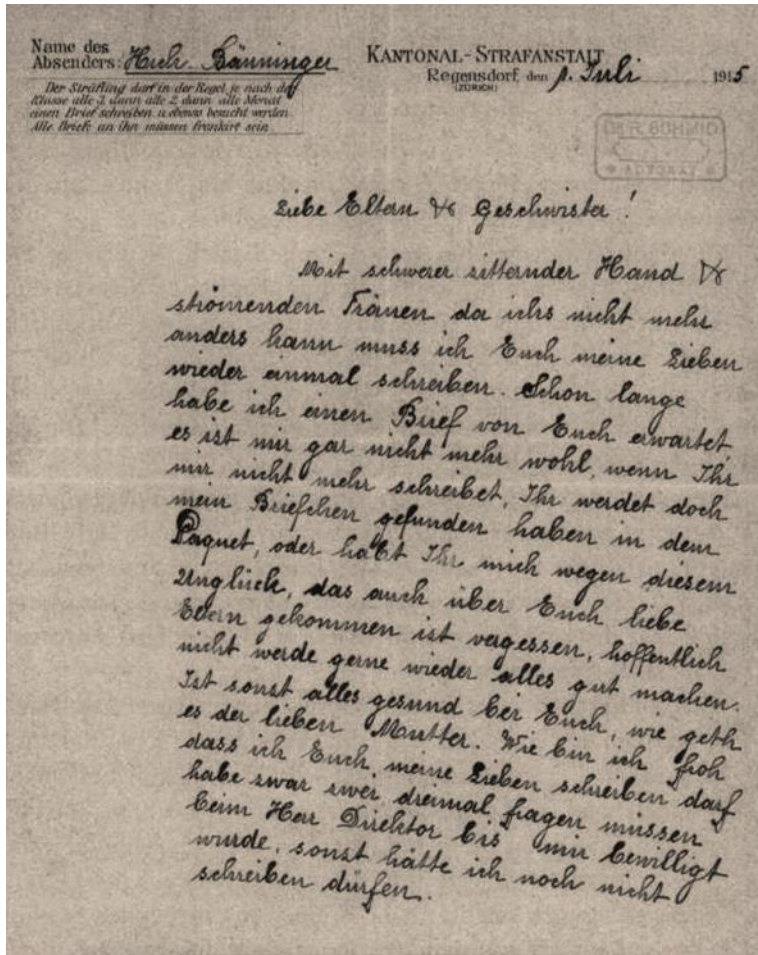 Name des
Absenders: Hch. Bänninger
KANTONAL-STRAFANSTALT
Regensdorf, den 1. Juli 1915
(ZÜRICH)
Der Sträfling darf in der Regel je nach der
Klasse alle 3, dann alle 2, dann alle Monat
einen Brief schreiben u. ebenso besucht werden.
Alle Briefe an ihn müssen frankirt sein.
Liebe Eltern & Geschwister!
Mit schwerer zitternder Hand &
strömenden Tränen da ichs nicht mehr
anders kann muss ich Euch meine Lieben
wieder einmal schreiben. Schon lange
habe ich einen Brief von Euch erwartet,
es ist mir gar nicht mehr wohl, wenn Ihr
mir nicht mehr schreibet, Ihr werdet doch
mein Briefchen gefunden haben in dem
Paquet, oder habt Ihr mich wegen diesem
Unglück, das auch über Euch liebe
Eltern gekommen ist vergessen, hoffentlich
nicht werde gerne wieder alles gut machen.
Ist sonst alles gesund bei Euch, wie geth
es der lieben Mutter. Wie bin ich froh
dass ich Euch meine Lieben schreiben darf
habe zwar zwei, dreimal fragen müssen
beim Herr Direktor bis mir bewilligt
wurde, sonst hätte ich noch nicht
schreiben dürfen.